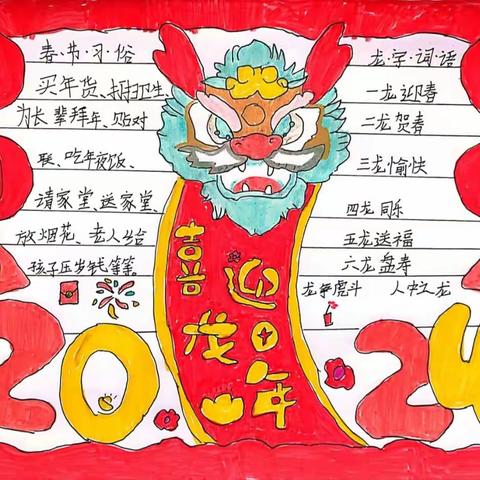 春·节·习·俗
买年货、打扫卫生
为长辈拜年、贴对
联、吃年夜饭、
请家堂、送家堂、
放烟花、老人给
孩子压岁钱等等。
喜迎龙年
龙·字·词·语
一龙迎春
二龙贺春
三龙愉快
四龙同乐
五龙送福
六龙盘寿
龙争虎斗 人中之龙
2024